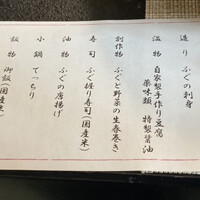 造り ふぐの刺身
温物 自家製手作り豆腐
薬味類 特製醤油
創作物 ふぐと野菜の生春巻き
寿司 ふぐ握り寿司(国産米)
油物 ふぐの唐揚げ
小鍋 てっちり
飯物 御飯(国産米)